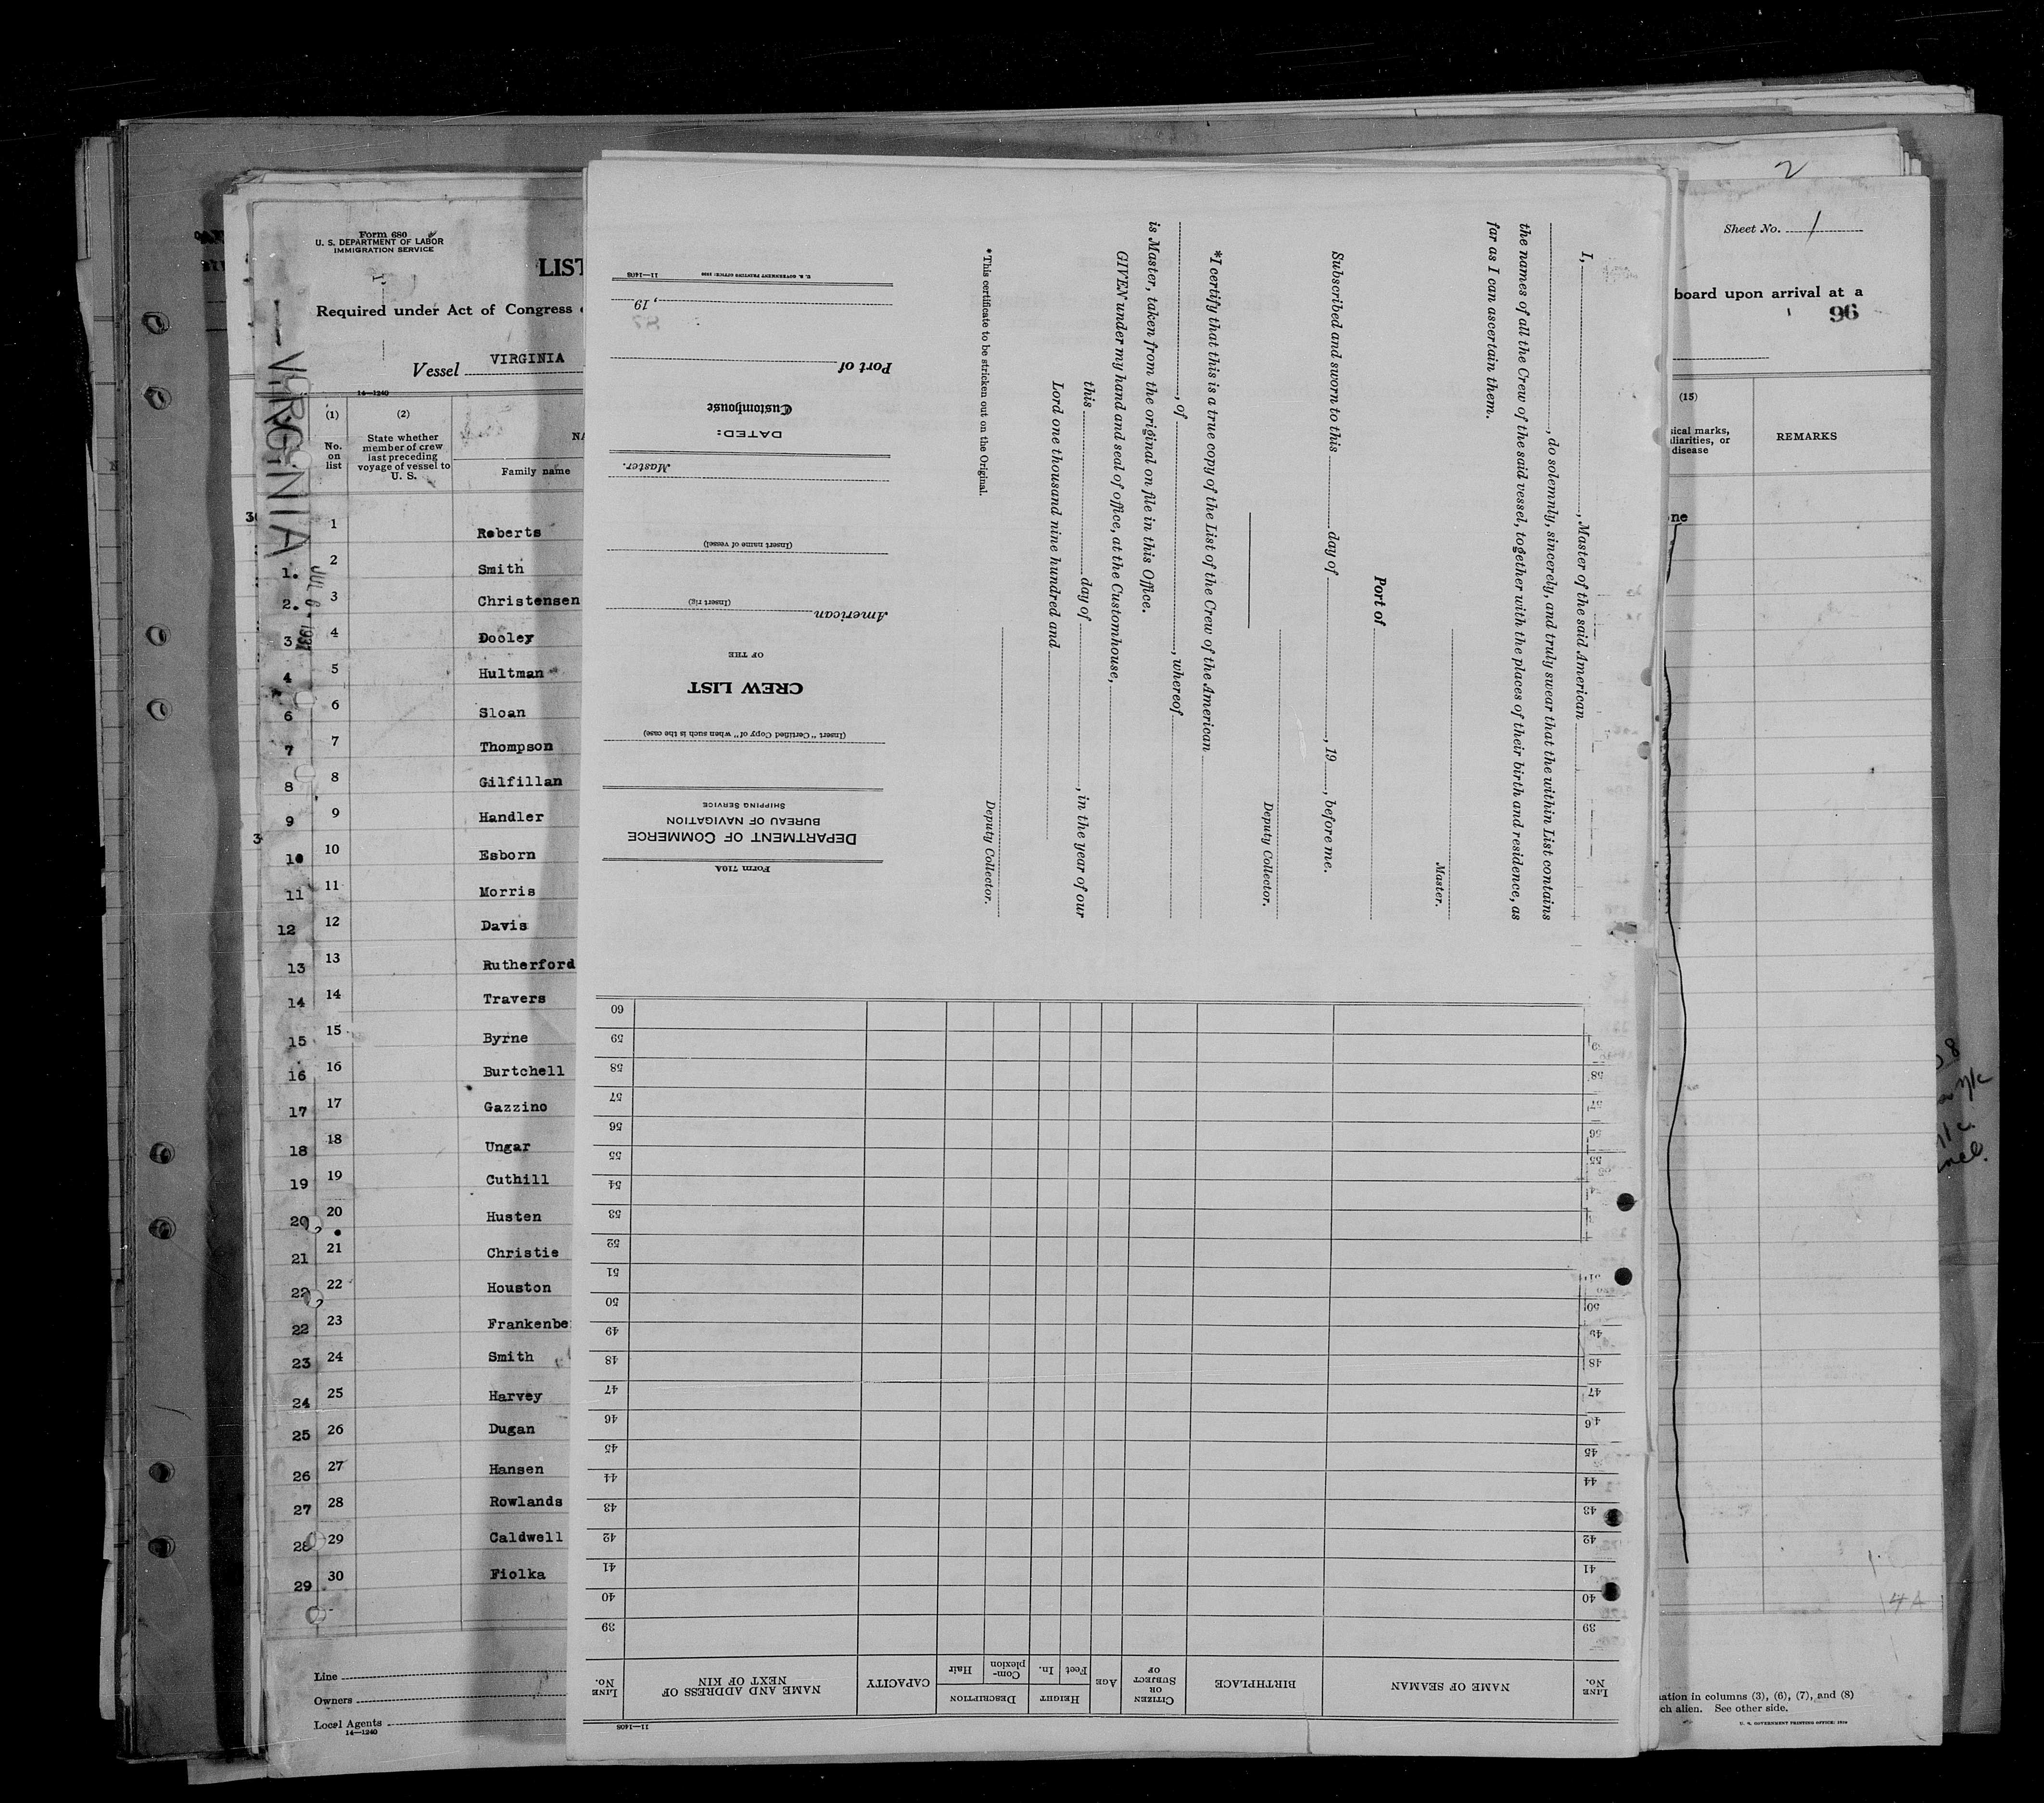 2
Form 680
U. S. DEPARTMENT OF LABOR
IMMIGRATION SERVICE
LIST
Required under Act of Congress
Vessel VIRGINIA
14—1240
VIRGINIA
JUL 6 - 1931
(1)
No.
on
list
(2)
State whether
member of crew
last preceding
voyage of vessel to
U. S.
Family name
1 Roberts
1. 2 Smith
2. 3 Christensen
3 4 Dooley
4 5 Hultman
6 6 Sloan
7 7 Thompson
8 8 Gilfillan
9 9 Handler
10 10 Esborn
11 11 Morris
12 12 Davis
13 13 Rutherford
14 14 Travers
15 15 Byrne
16 16 Burtchell
17 17 Gazzino
18 18 Ungar
19 19 Cuthill
20 20 Husten
21 21 Christie
22 22 Houston
22 23 Frankenbe
23 24 Smith
24 25 Harvey
25 26 Dugan
26 27 Hansen
27 28 Rowlands
28 29 Caldwell
29 30 Fiolka
Line
Owners
Local Agents
14—1240
Form 710A
DEPARTMENT OF COMMERCE
BUREAU OF NAVIGATION
SHIPPING SERVICE
(Insert "Certified Copy of" when such is the case)
CREW LIST
OF THE
American
(Insert rig)
(Insert name of vessel)
Master.
DATED:
Customhouse
Port of
, 19
U. S. GOVERNMENT PRINTING OFFICE: 1930 11—1408
I, , Master of the said American
, do solemnly, sincerely, and truly swear that the within List contains
the names of all the Crew of the said vessel, together with the places of their birth and residence, as
far as I can ascertain them.
Master.
Port of
Subscribed and sworn to this day of , 19 , before me.
Deputy Collector.
*I certify that this is a true copy of the List of the Crew of the American
, of , whereof
is Master, taken from the original on file in this Office.
GIVEN under my hand and seal of office, at the Customhouse,
this day of , in the year of our
Lord one thousand nine hundred and
Deputy Collector.
*This certificate to be stricken out on the Original.
11—1408
LINE
No.
NAME OF SEAMAN
BIRTHPLACE
CITIZEN
OR
SUBJECT
OF
AGE
HEIGHT
Feet
In.
DESCRIPTION
Com-
plexion
Hair
CAPACITY
NAME AND ADDRESS OF
NEXT OF KIN
LINE
No.
39
40
41
42
43
44
45
46
47
48
49
50
51
52
53
54
55
56
57
58
59
60
Sheet No. 1
board upon arrival at a
96
(15)
disease
REMARKS
ation in columns (3), (6), (7), and (8)
ch alien. See other side.
U. S. GOVERNMENT PRINTING OFFICE: 1930